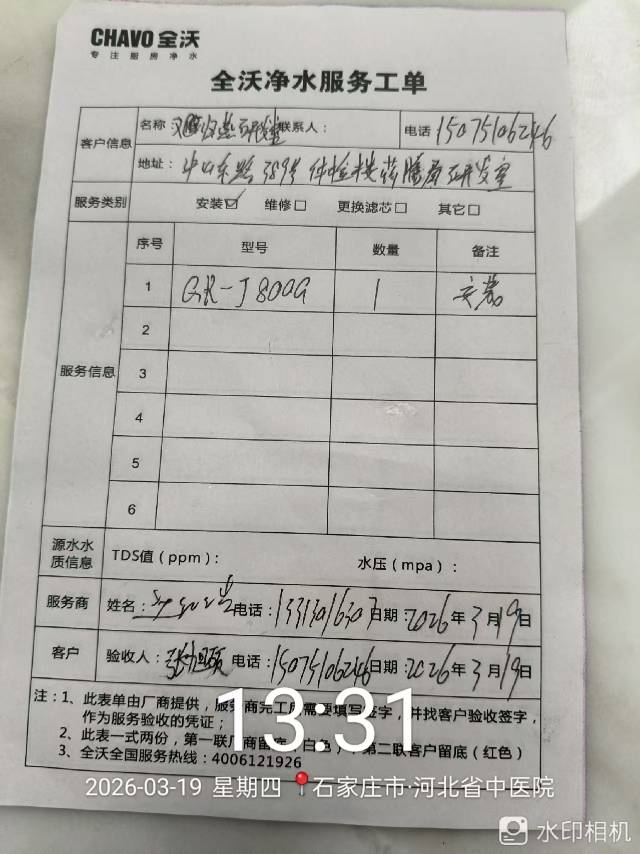 CHAVO 全沃
专 注 厨 房 净 水
全沃净水服务工单
客户信息
名称 研发室 联系人： 电话 15075106246
地址： 中山东路389号 体检楼药膳房研发室
服务类别 安装☑ 维修□ 更换滤芯□ 其它□
服务信息
序号 型号 数量 备注
1 GR-J800G 1 安装
2
3
4
5
6
源水水质信息 TDS值（ppm）： 水压（mpa）：
服务商 姓名： 电话：13131016303 日期：2026年3月19日
客户 验收人： 电话：15075106246 日期：2026年3月19日
注：1、此表单由厂商提供，服务商完工所需要填写签字，并找客户验收签字，
作为服务验收的凭证；
2、此表一式两份，第一联厂商留底（白色），第二联客户留底（红色）
3、全沃全国服务热线：4006121926
13:31
2026-03-19 星期四 石家庄市·河北省中医院
水印相机